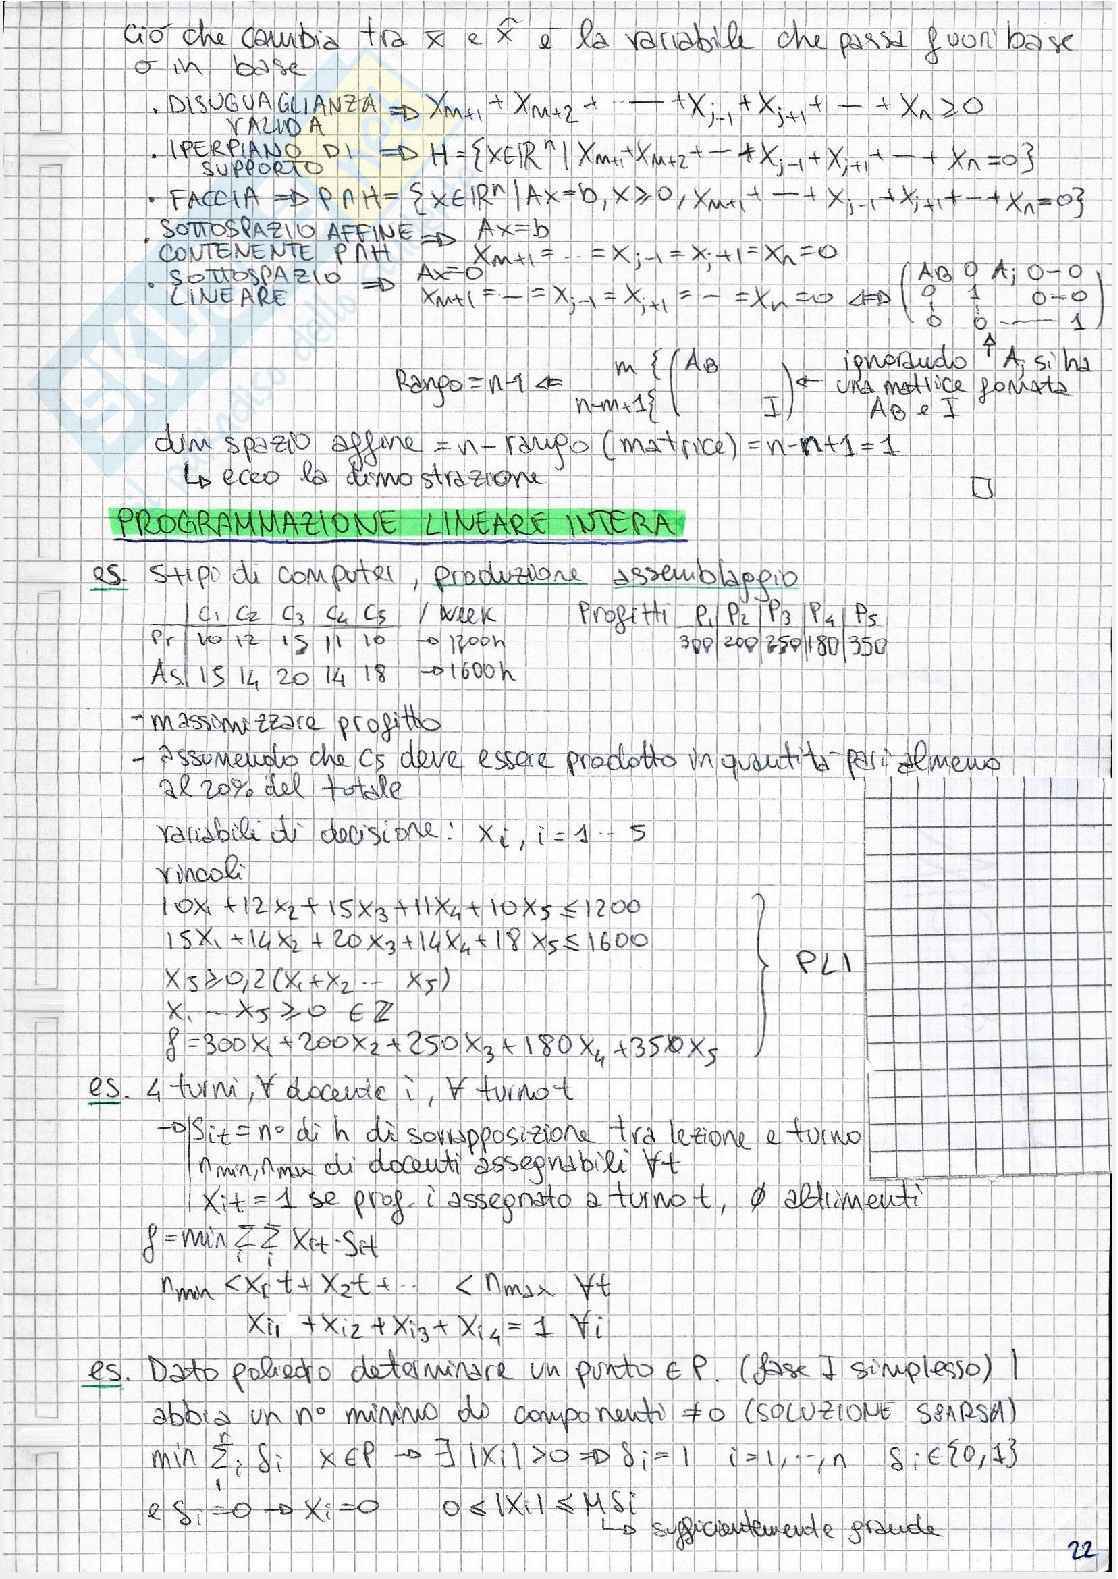 Ciò che cambia tra x e x̂ è la variabile che passa fuori base
o in base
. DISUGUAGLIANZA VALIDA => Xm+1 + Xm+2 + ... + Xj-1 + Xj+1 + — + Xn ≥ 0
. IPERPIANO DI SUPPORTO => H = {X∈ℝⁿ | Xm+1 + Xm+2 + — + Xj-1 + Xj+1 + — + Xn = 0}
. FACCIA => P∩H = {X∈ℝⁿ | Ax=b, X≥0, Xm+1 + — + Xj-1 + Xj+1 + — + Xn = 0}
. SOTTOSPAZIO AFFINE CONTENENTE P∩H => Ax=b
Xm+1 = ... = Xj-1 = Xj+1 = Xn = 0
. SOTTOSPAZIO LINEARE => Ax=0
Xm+1 = — = Xj-1 = Xj+1 = — = Xn = 0 <=> (AB 0 Aj 0-0
0 1 0-0
0 0 —— 1)
Rango = n-1 <= m { (AB
n-m+1{ I) ← ignorando ↑ Aj si ha
una matrice formata
AB e I
dim spazio affine = n - rango (matrice) = n-n+1 = 1
↳ ecco la dimostrazione □
PROGRAMMAZIONE LINEARE INTERA
es. 5 tipi di computer, produzione assemblaggio
C1 C2 C3 C4 C5 / WEEK Profitti P1 | P2 | P3 | P4 | P5
Pr 10 12 15 11 10 → 1200h 300 | 200 | 250 | 180 | 350
As 15 14 20 14 18 → 1600h
- massimizzare profitto
- Assumendo che C5 deve essere prodotto in quantità pari almeno
al 20% del totale
variabili di decisione: xi, i = 1 ·· 5
vincoli
10x1 + 12x2 + 15x3 + 11x4 + 10x5 ≤ 1200
15x1 + 14x2 + 20x3 + 14x4 + 18x5 ≤ 1600
x5 ≥ 0,2(x1 + x2 ··· x5) } PLI
x1 — x5 ≥ 0 ∈ ℤ
f = 300x1 + 200x2 + 250x3 + 180x4 + 350x5
es. 4 turni, ∀ docente i, ∀ turno t
→ Sit = n° di h di sovrapposizione tra lezione e turno
nmin, nmax di docenti assegnabili ∀t
Xit = 1 se prof. i assegnato a turno t, 0 altrimenti
f = min Σ Σ Xit · Sit
nmin < X1t + X2t + ·· < nmax ∀t
Xi1 + Xi2 + Xi3 + Xi4 = 1 ∀i
es. Dato poliedro determinare un punto ∈ P. (fase I simplesso) |
abbia un n° minimo di componenti ≠ 0 (SOLUZIONE SPARSA)
min Σi δi x∈P → ∃ |Xi| > 0 => δi = 1 i = 1, ··, n δi ∈ {0,1}
e δi = 0 → Xi = 0 0 ≤ |Xi| ≤ M δi
↳ sufficientemente grande
22